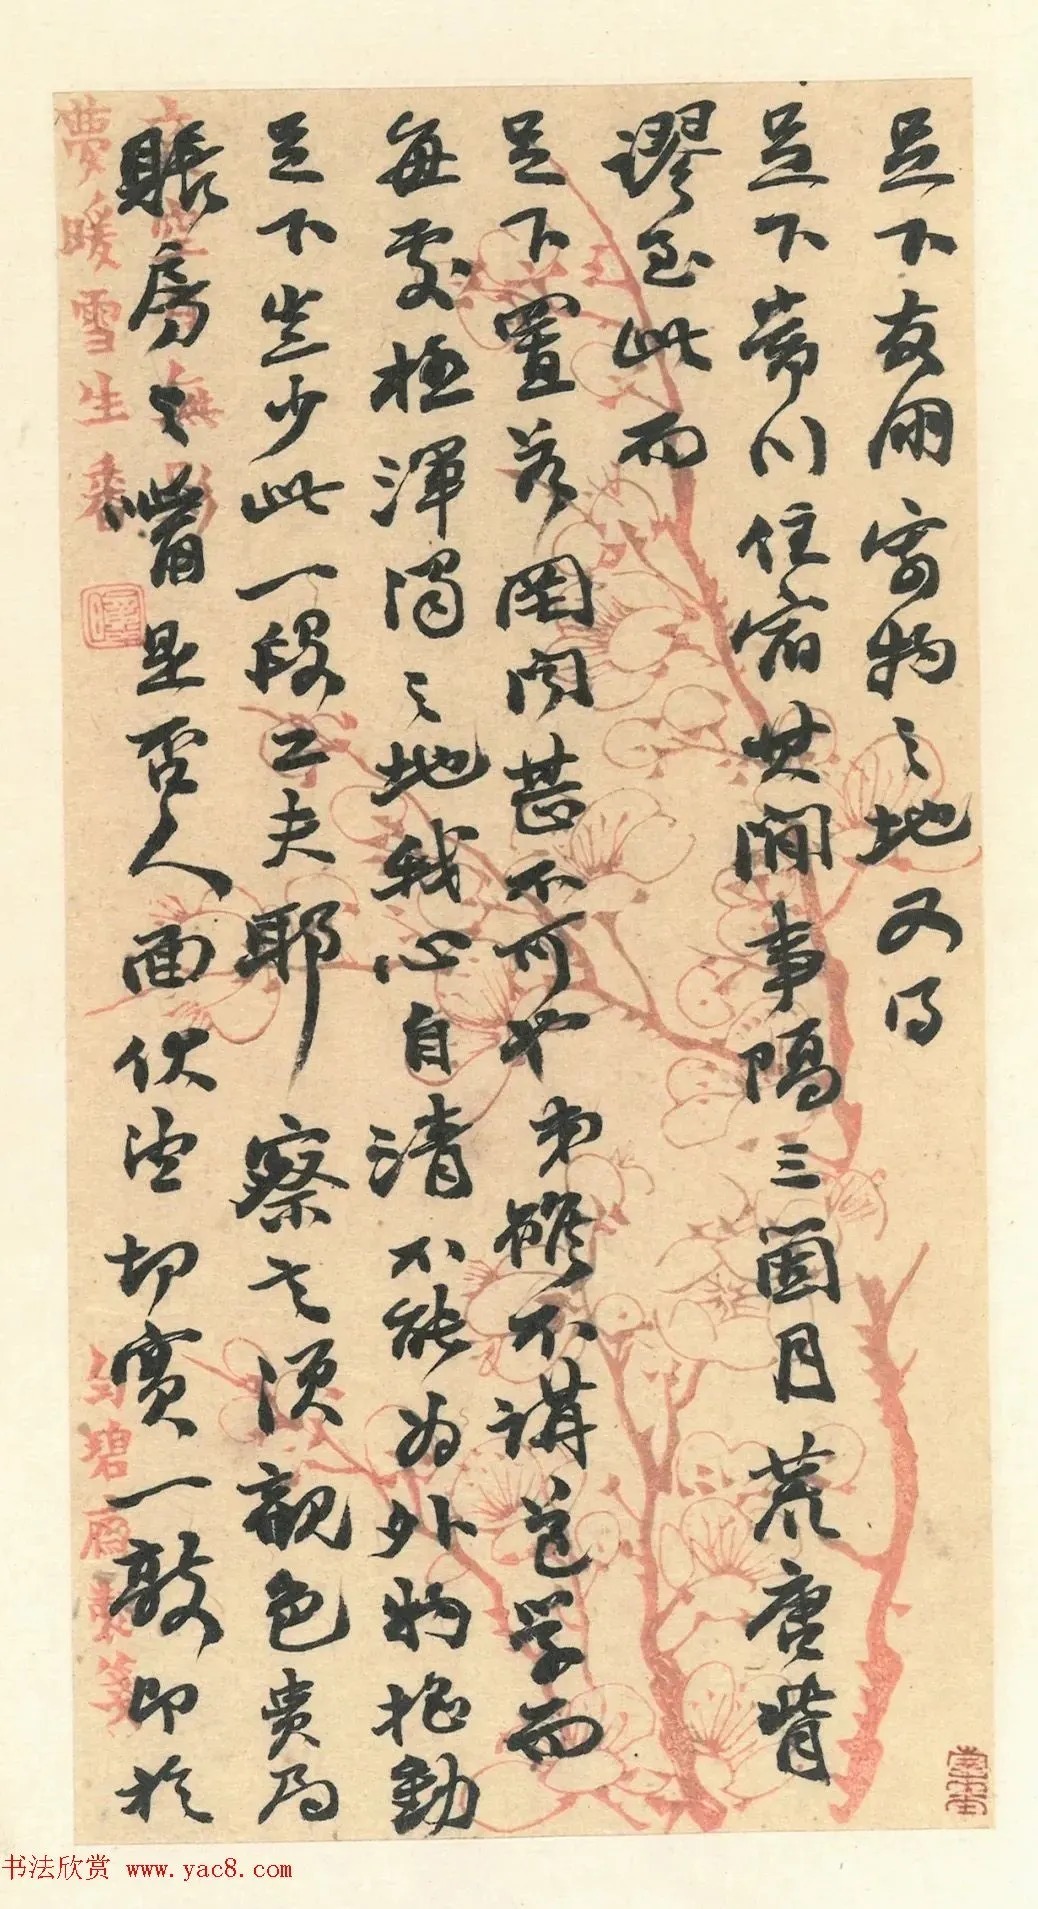 足下友朋寄物之地又得
足下常川住宿其間事隔三箇月荒唐背
謬至此而
足下置若罔聞甚不可也弟雖不講道學而
每處極渾濁之地我心自清不能為外物搖動
足下豈少此一段工夫耶察之須親色貴局
賬房之嘴是否人面伏望切實一敲即於
夢暖雪生香
碧
書法欣賞 www.yac8.com